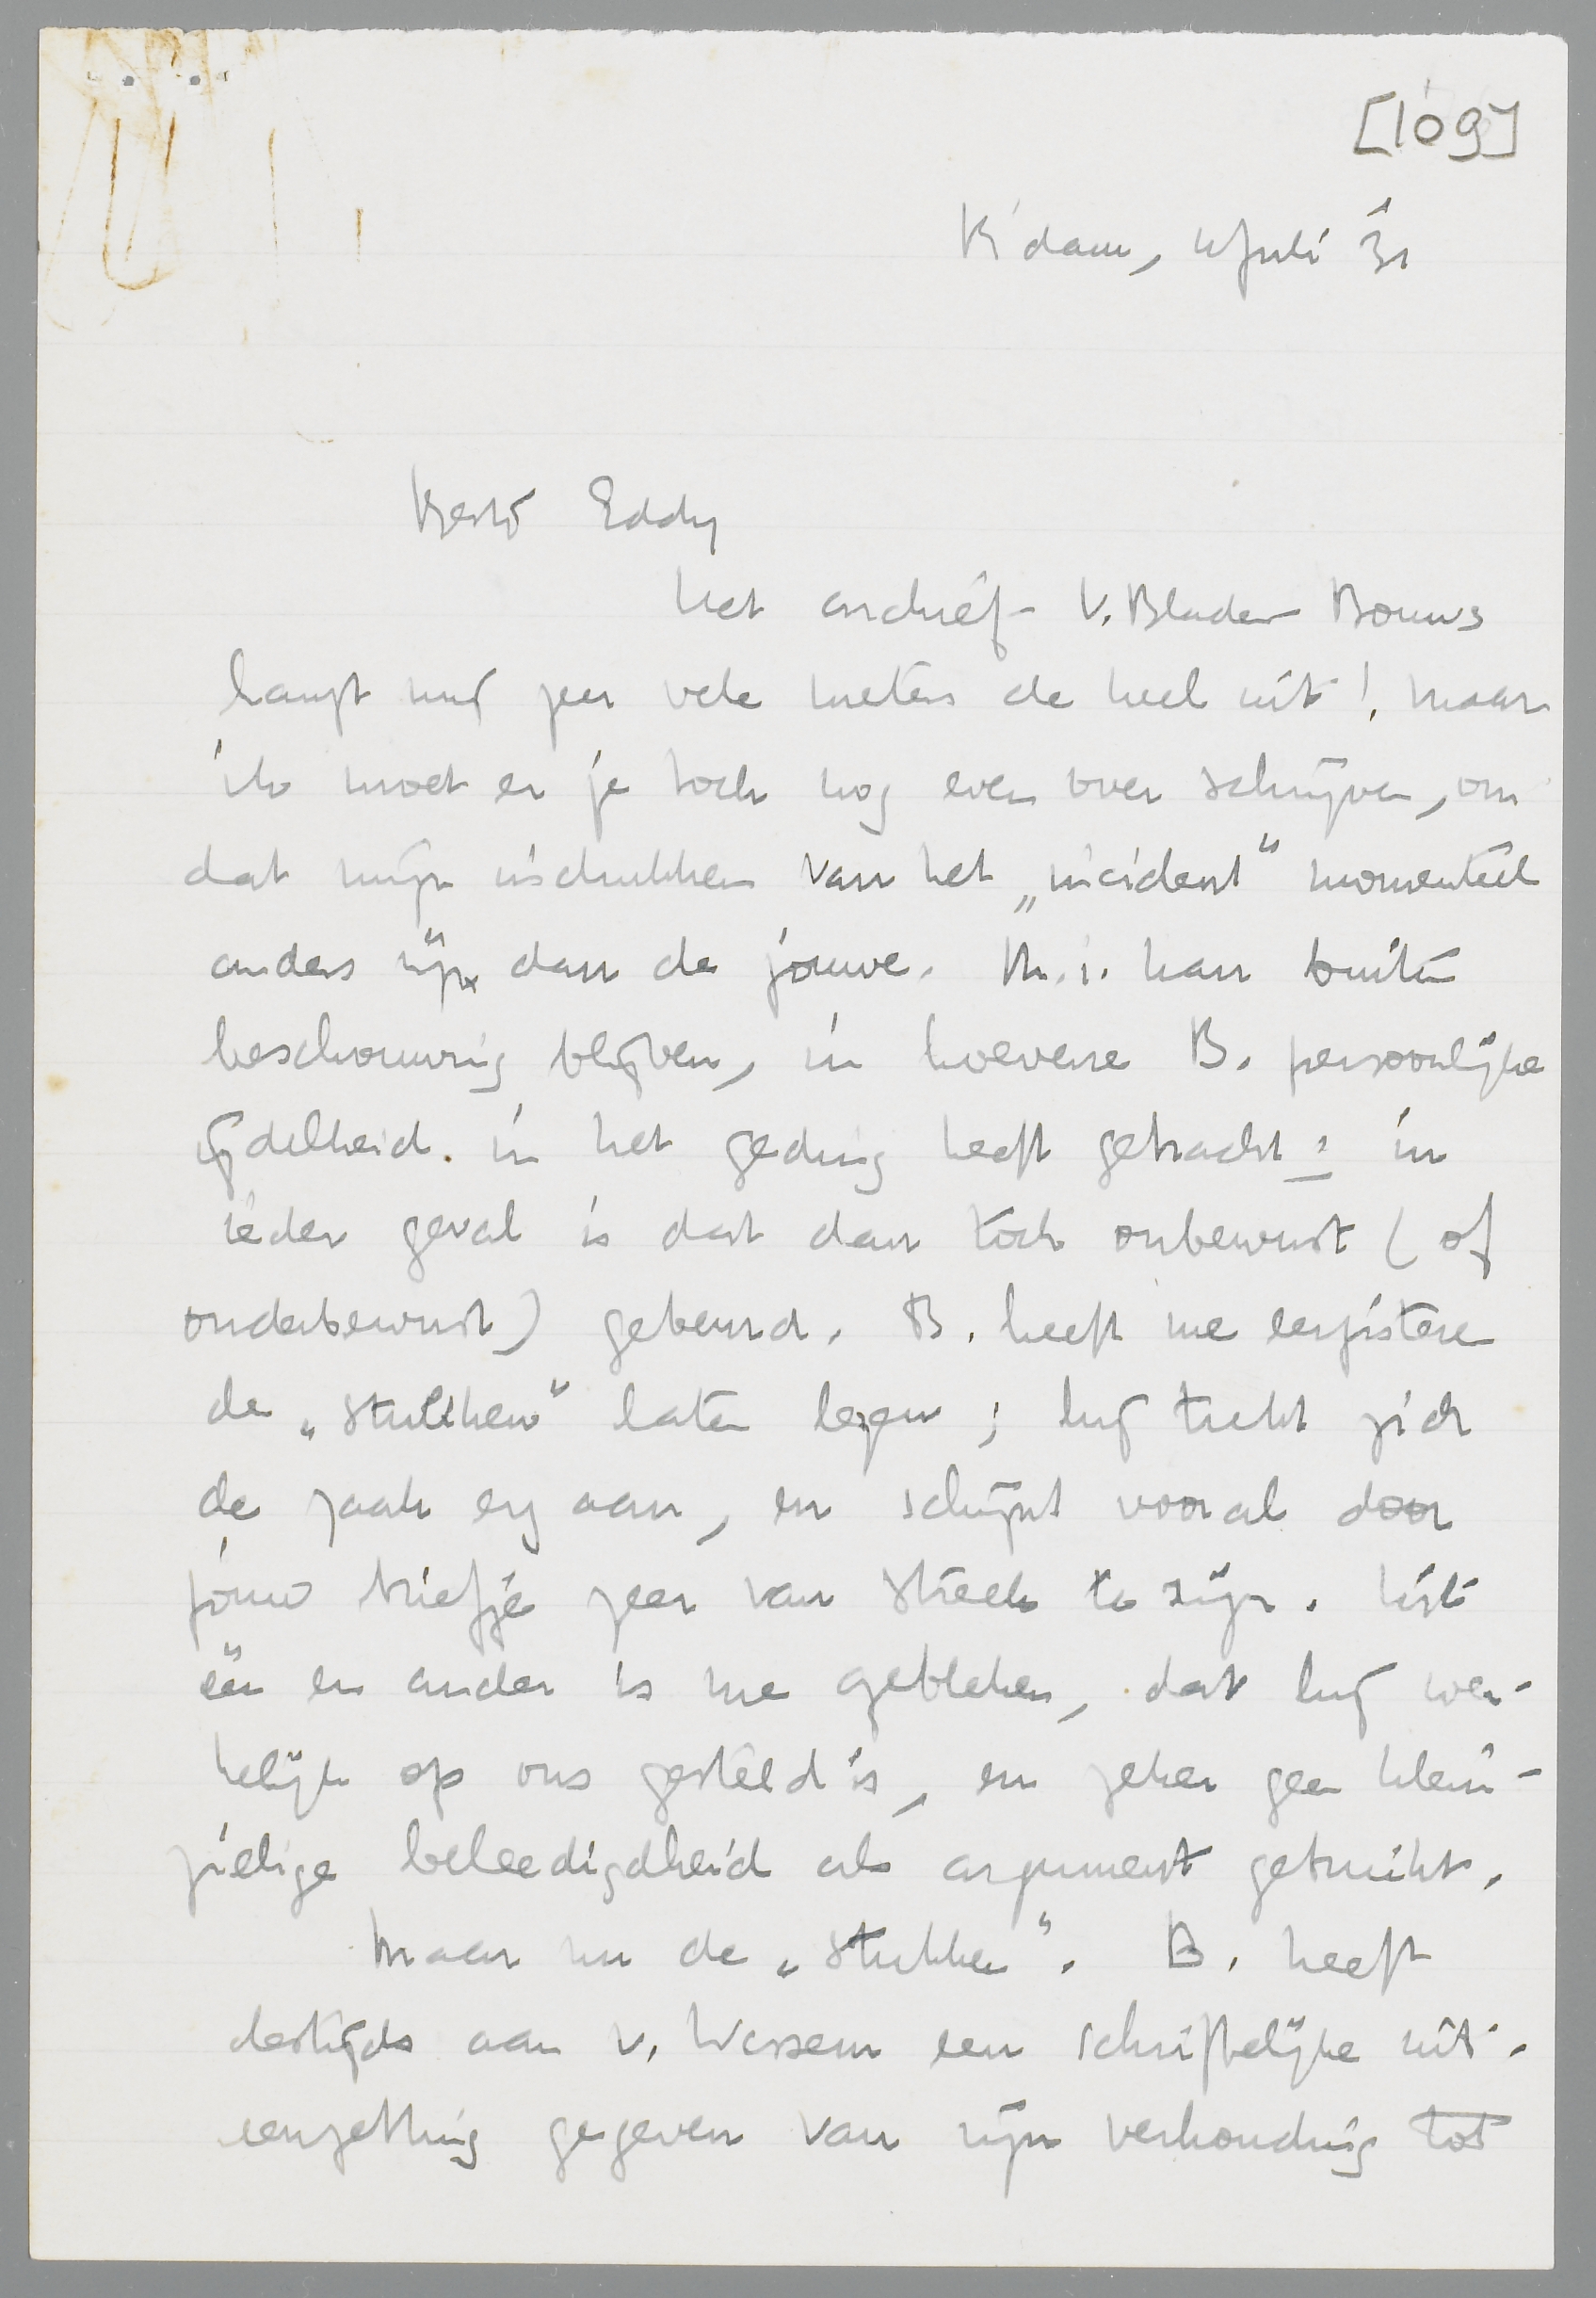 [109]
R'dam, Juli 31
Beste Eddy
Het archief-V. Blader-Bouws
hangt mij zeer vele meters de keel uit! Maar
ik moet er je toch nog even over schrijven, om
dat mijn indrukken van het „incident" momenteel
anders zijn dan de jouwe. M.i. kan buiten
beschouwing blijven, in hoeverre B. persoonlijke
ijdelheid in het geding heeft gebracht; in
ieder geval is dat dan toch onbewust (of
onderbewust) gebeurd. B. heeft me eergisteren
de „stukken" laten lezen; hij trekt zich
de zaak erg aan, en schijnt vooral door
jouw briefje zeer van streek te zijn. Uit
één en ander is me gebleken, dat hij wer-
kelijk op ons gesteld is, en zeker geen klein-
zielige beleedigdheid als argument gebruikt.
Maar nu de „stukken". B. heeft
destijds aan v. Wessem een schriftelijke uit-
eenzetting gegeven van zijn verhouding tot